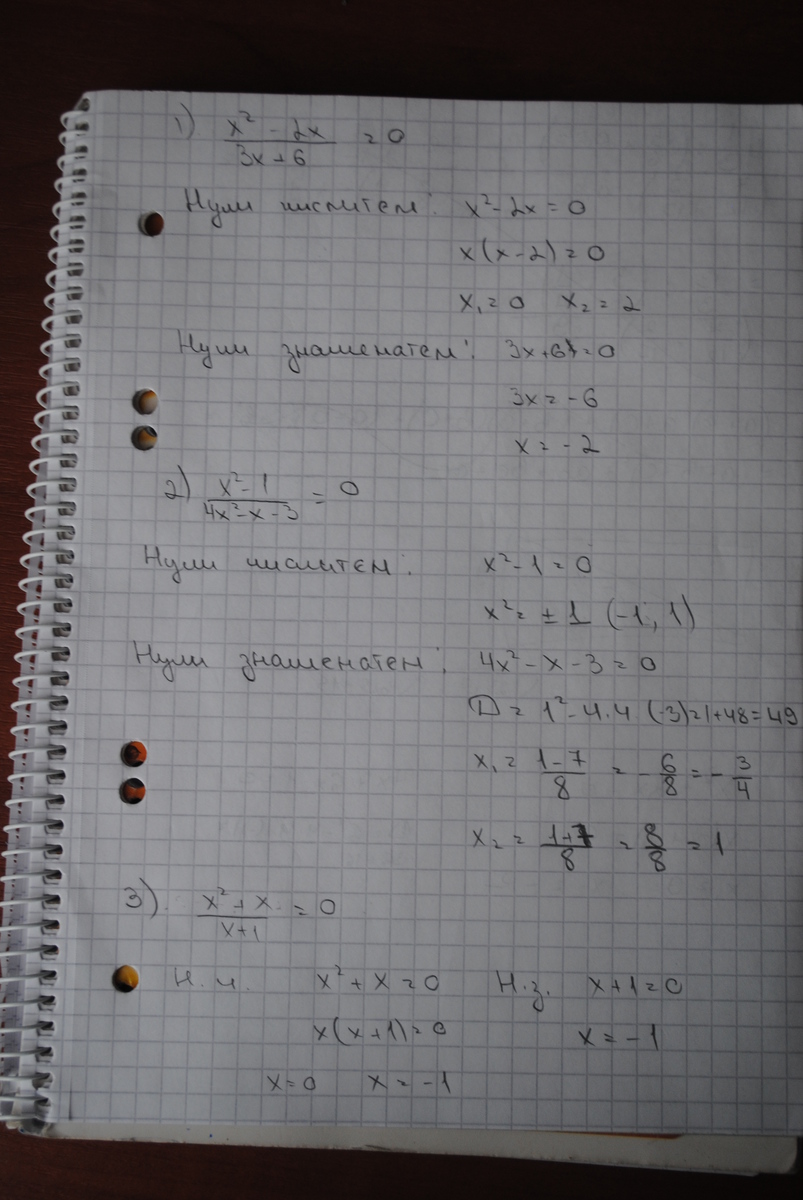 1) x² - 2x / 3x + 6 = 0
Нули числители: x² - 2x = 0
x(x - 2) = 0
x₁ = 0 x₂ = 2
Нули знаменатели: 3x + 6 = 0
3x = -6
x = -2
2) x² - 1 / 4x² - x - 3 = 0
Нули числители: x² - 1 = 0
x² = ± 1 (-1; 1)
Нули знаменатели: 4x² - x - 3 = 0
D = 1² - 4 · 4 (-3) = 1 + 48 = 49
x₁ = 1 - 7 / 8 = - 6/8 = - 3/4
x₂ = 1 + 7 / 8 = 8/8 = 1
3). x² + x / x + 1 = 0
Н.ч. x² + x = 0 Н.з. x + 1 = 0
x(x + 1) = 0 x = -1
x = 0 x = -1